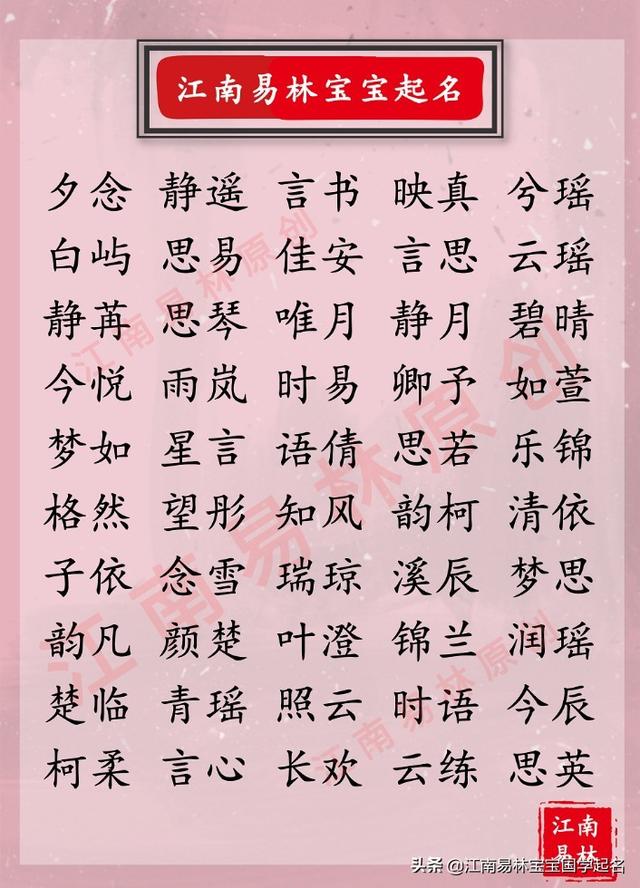 江南易林宝宝起名
夕念 静遥 言书 映真 兮瑶
白屿 思易 佳安 言思 云瑶
静苒 思琴 唯月 静月 碧晴
今悦 雨岚 时易 卿予 如萱
梦如 星言 语倩 思若 乐锦
格然 望彤 知风 韵柯 清依
子依 念雪 瑞琼 溪辰 梦思
韵凡 颜楚 叶澄 锦兰 润瑶
楚临 青瑶 照云 时语 今辰
柯柔 言心 长欢 云练 思英
江南易林原创
江南易林原创
江南易林原创
江南
易林
头条 @江南易林宝宝国学起名